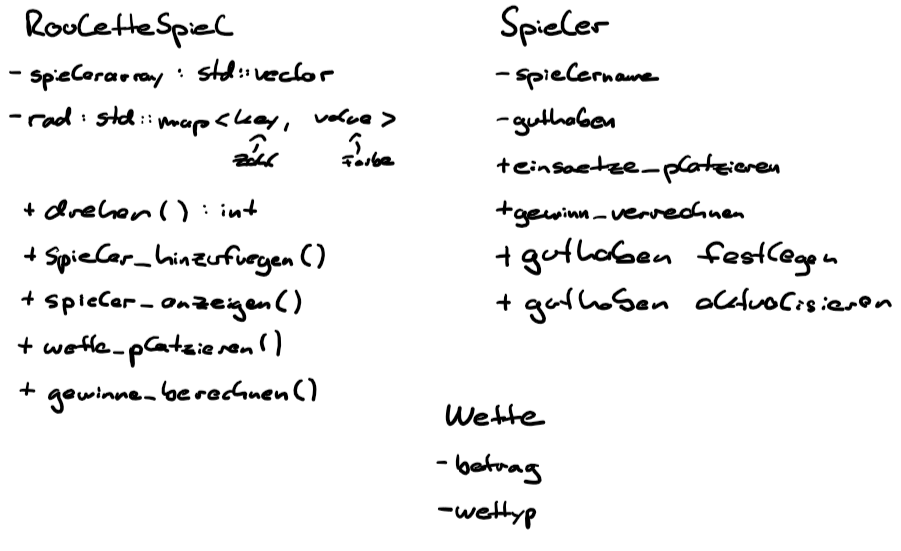 RouletteSpiel
- spielerarray : std::vector
- rad : std::map<key, value>
Zahl Farbe
+ drehen() : int
+ Spieler_hinzufuegen()
+ spieler_anzeigen()
+ wette_platzieren()
+ gewinne_berechnen()
Spieler
- spielername
- guthaben
+ einsaetze_platzieren
+ gewinn_verrechnen
+ guthaben festlegen
+ guthaben aktualisieren
Wette
- betrag
- wettyp